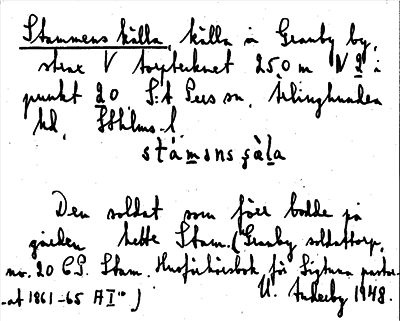 Stammens källa, källa i Granby by,
strax V torptecknet 250 m N 2 i
punkt 20 S:t Pers sn, Ärlinghundra
hd, Sthlms l.
stámǝns çä̀la
Den soldat som förr bodde på
gården hette Stam. (Granby soldattorp,
no. 20 C.P. Stam. Husförhörsbok för Sigtuna pasto-
-rat 1861-65 AI 10)
U. Anderby 1948.